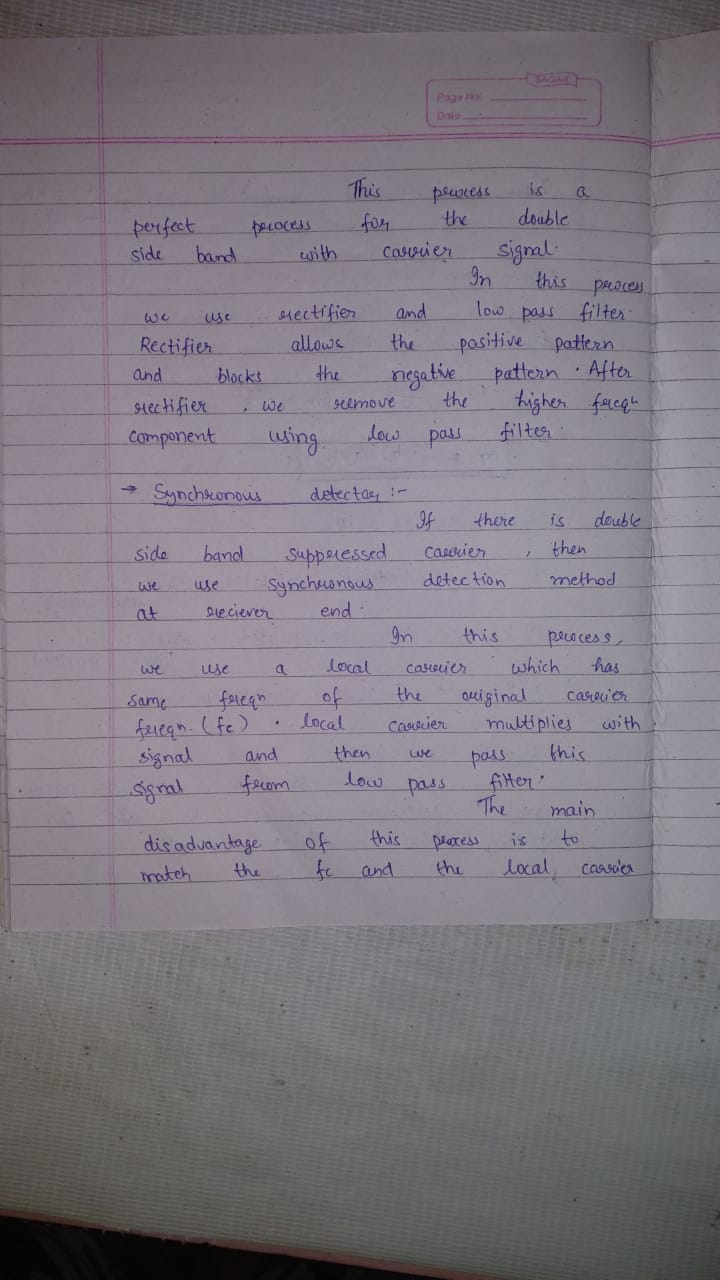 SAGAR
Page No:
Date
This process is a
perfect process for the double
side band with carrier signal.
In this process
we use rectifier and low pass filter.
Rectifier allows the positive pattern
and blocks the negative pattern. After
rectifier, we remove the higher freqn
component using low pass filter.
→ Synchronous detector :-
If there is double
side band suppressed carrier, then
we use synchronous detection method
at reciever end.
In this process,
we use a local carrier which has
same freqn of the original carrier
freqn. (fc). local carrier multiplies with
signal and then we pass this
signal from low pass filter.
The main
disadvantage of this process is to
match the fc and the local carrier